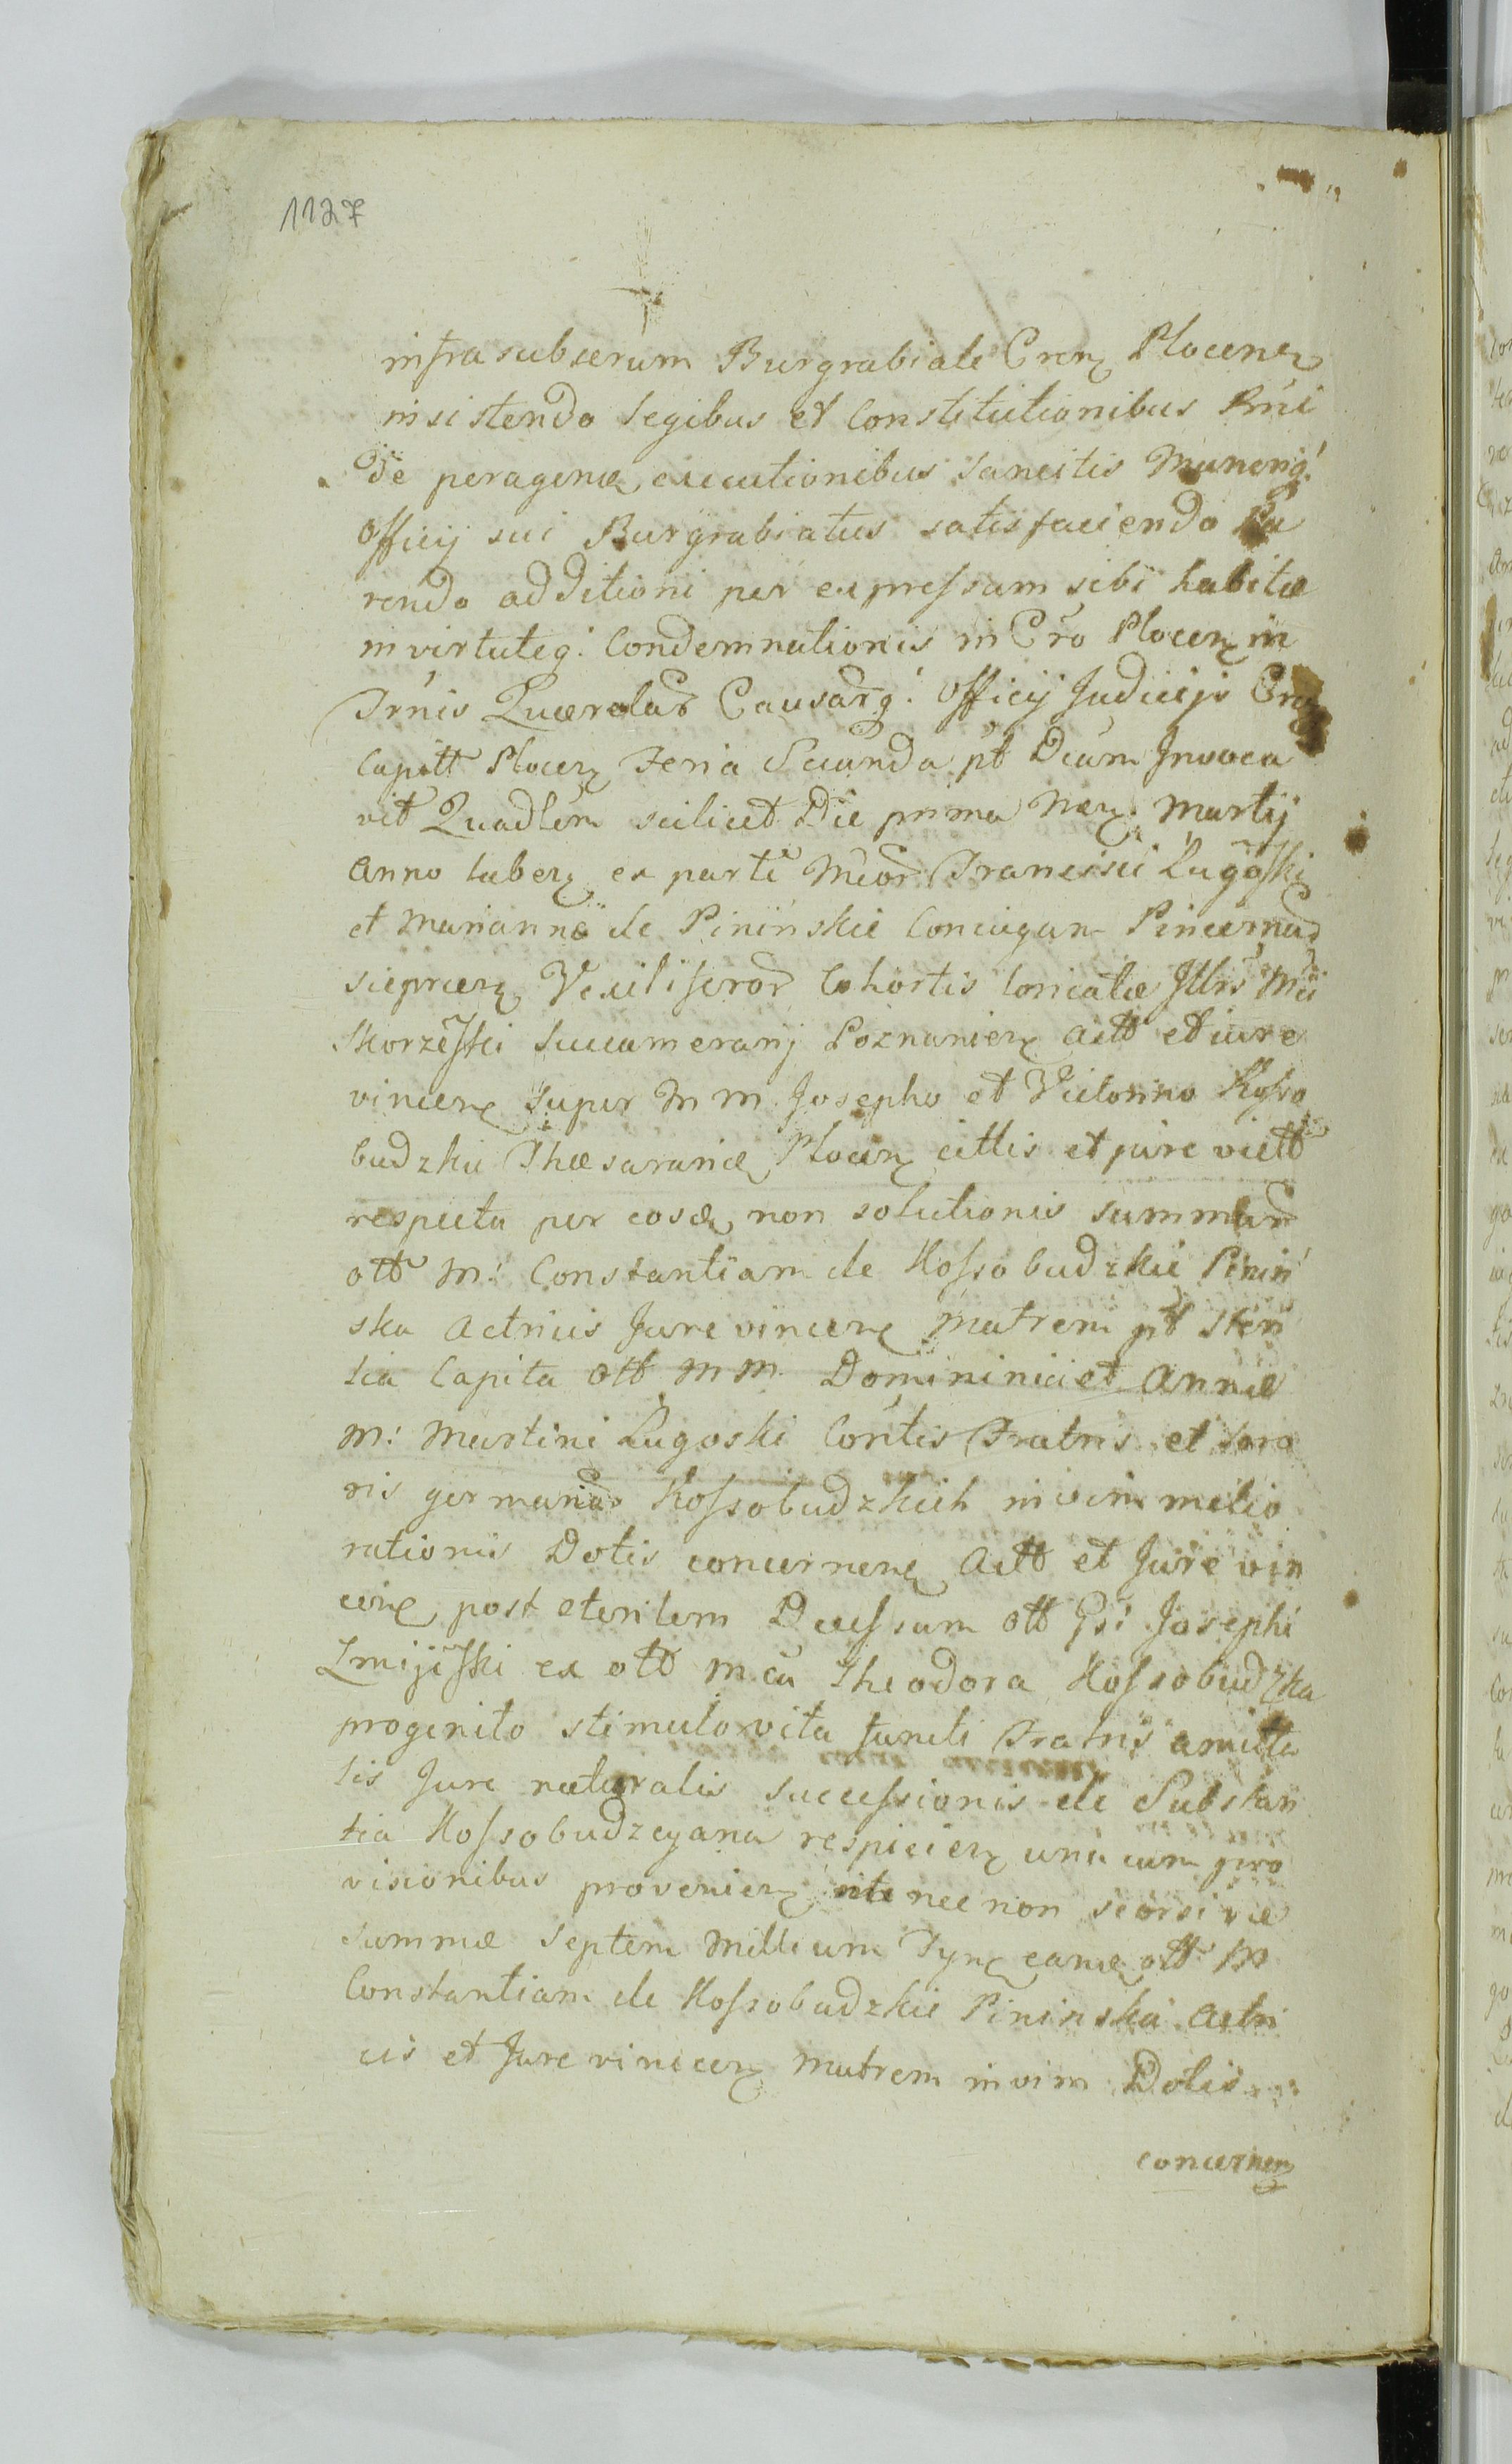 1127
infrasubserum Burgrabiale Cren Plocen
insistendo legibus et Constitutionibus Rni
de peragend executionibus sancitis Muneriq:
Officij sui Burgrabiatus satisfaciendo Pa
rendo additioni per expressam sibi habitæ
in virtuteq: Condemnationis in Cro Plocen in
Trnis Querelar Causarq: Officij Judicijs Cren
Capitt Plocen Feria Secunda pt Dcam Invoca
vit Quadlem scilicet Die prima Mens Martij
Anno laben ex parte Mcor Francisci Lugoski
et Mariannæ de Pininskie Coniugum Pincernar
sieprcen Vexiliferor Cohortis loricatæ Jllris Mci
Skorzeski Succamerarij Poznanien Actt et iure
vincen super M M Josepho et Victorino Kosso
budzkie Thesaurariæ Plocen cittis et jure victt
respectu per eosd non solutionis summar
ott M: Constantiam de Kossobudzkie Pinin
ska Actricis Jure vincen Matrem pt Sten
tia Capita ott M M Domininici et Annæ
M: Martini Lugoski Contis Fratris et Soro
ris germanar Kossobudzkich in vim melio
rationis Dotis concernen Actt et Jure vin
cen post sterilem Decessum ott Gsi Josephi
Zmijeski ex ott M ca Theodora Kossobudzka
progenito stimulo vita functi Fratris amitta
lis Jure naturalis successionis de Substan
tia Kossobudzcyana respicien una cum pro
visionibus provenien nec non seorsivæ
summæ Septem Millium Tyn eand ott M
Constantiam de Kossobudzkie Pininska Actri
cis et Jure vincen Matrem in vim Dotis
concernen